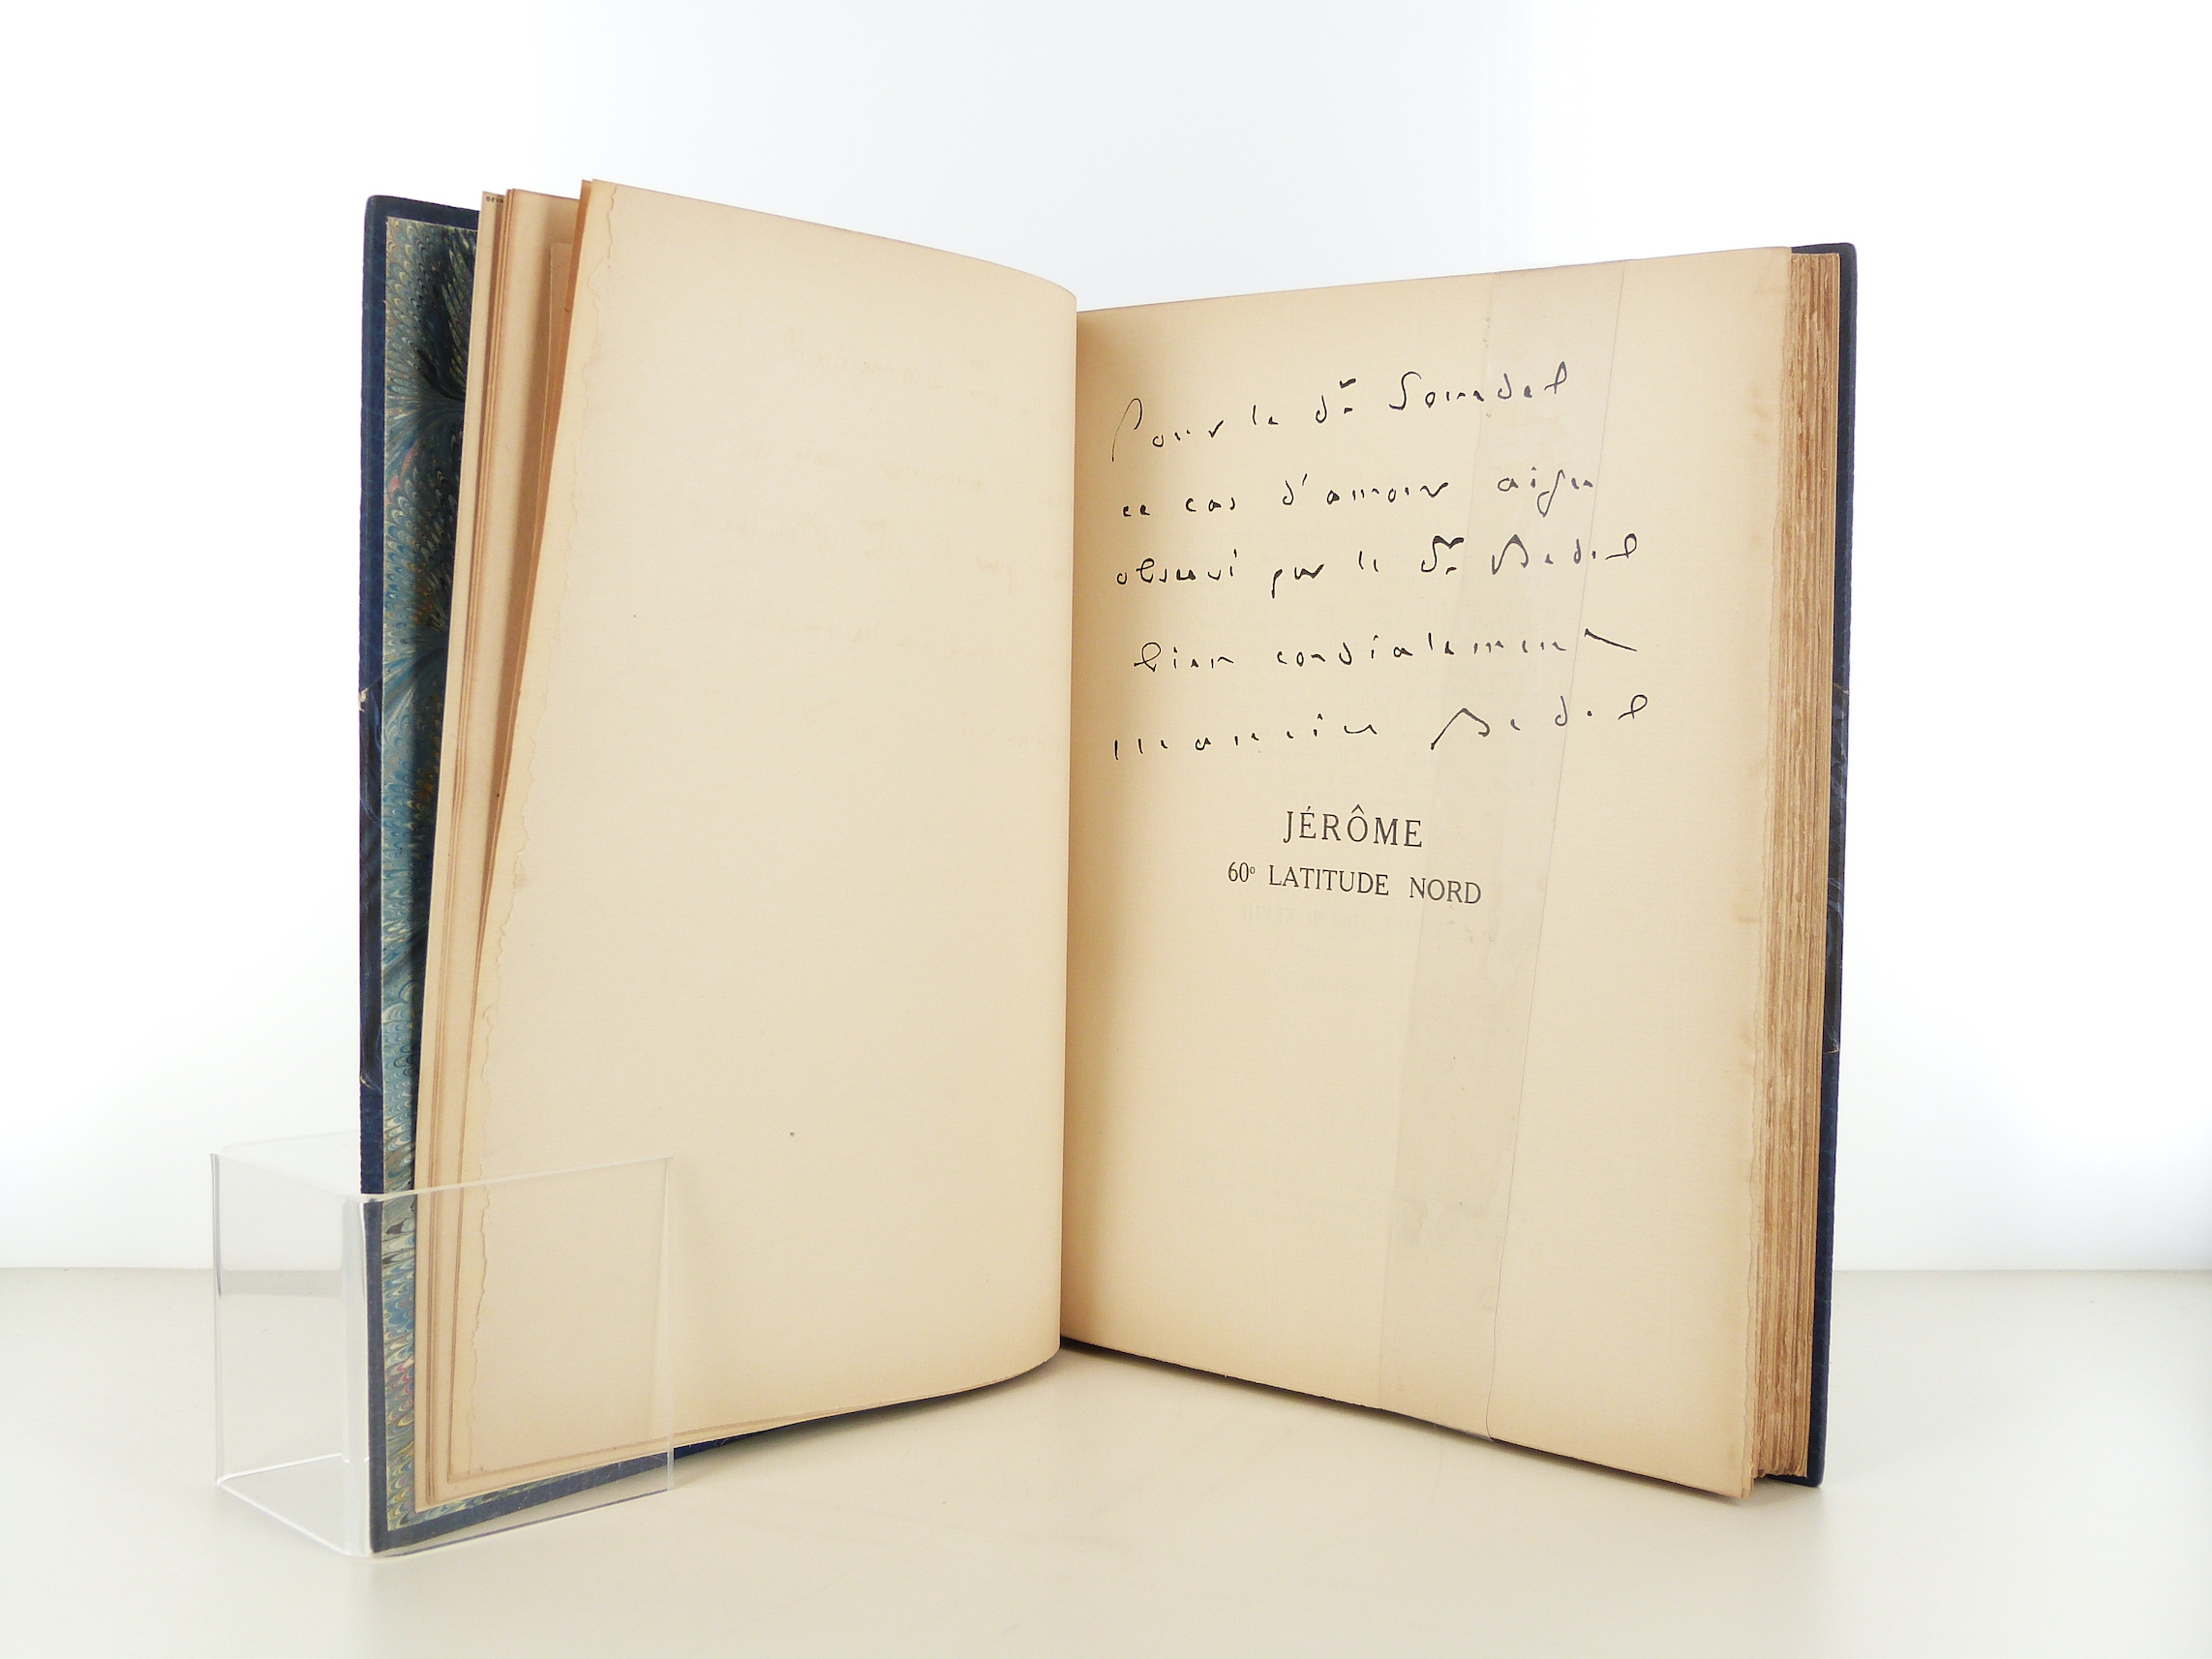 Pour le Dr Sourdel
ce cas d'amour aigu
observé par le Dr Bedel
bien cordialement
Maurice Bedel
JÉRÔME
60° LATITUDE NORD